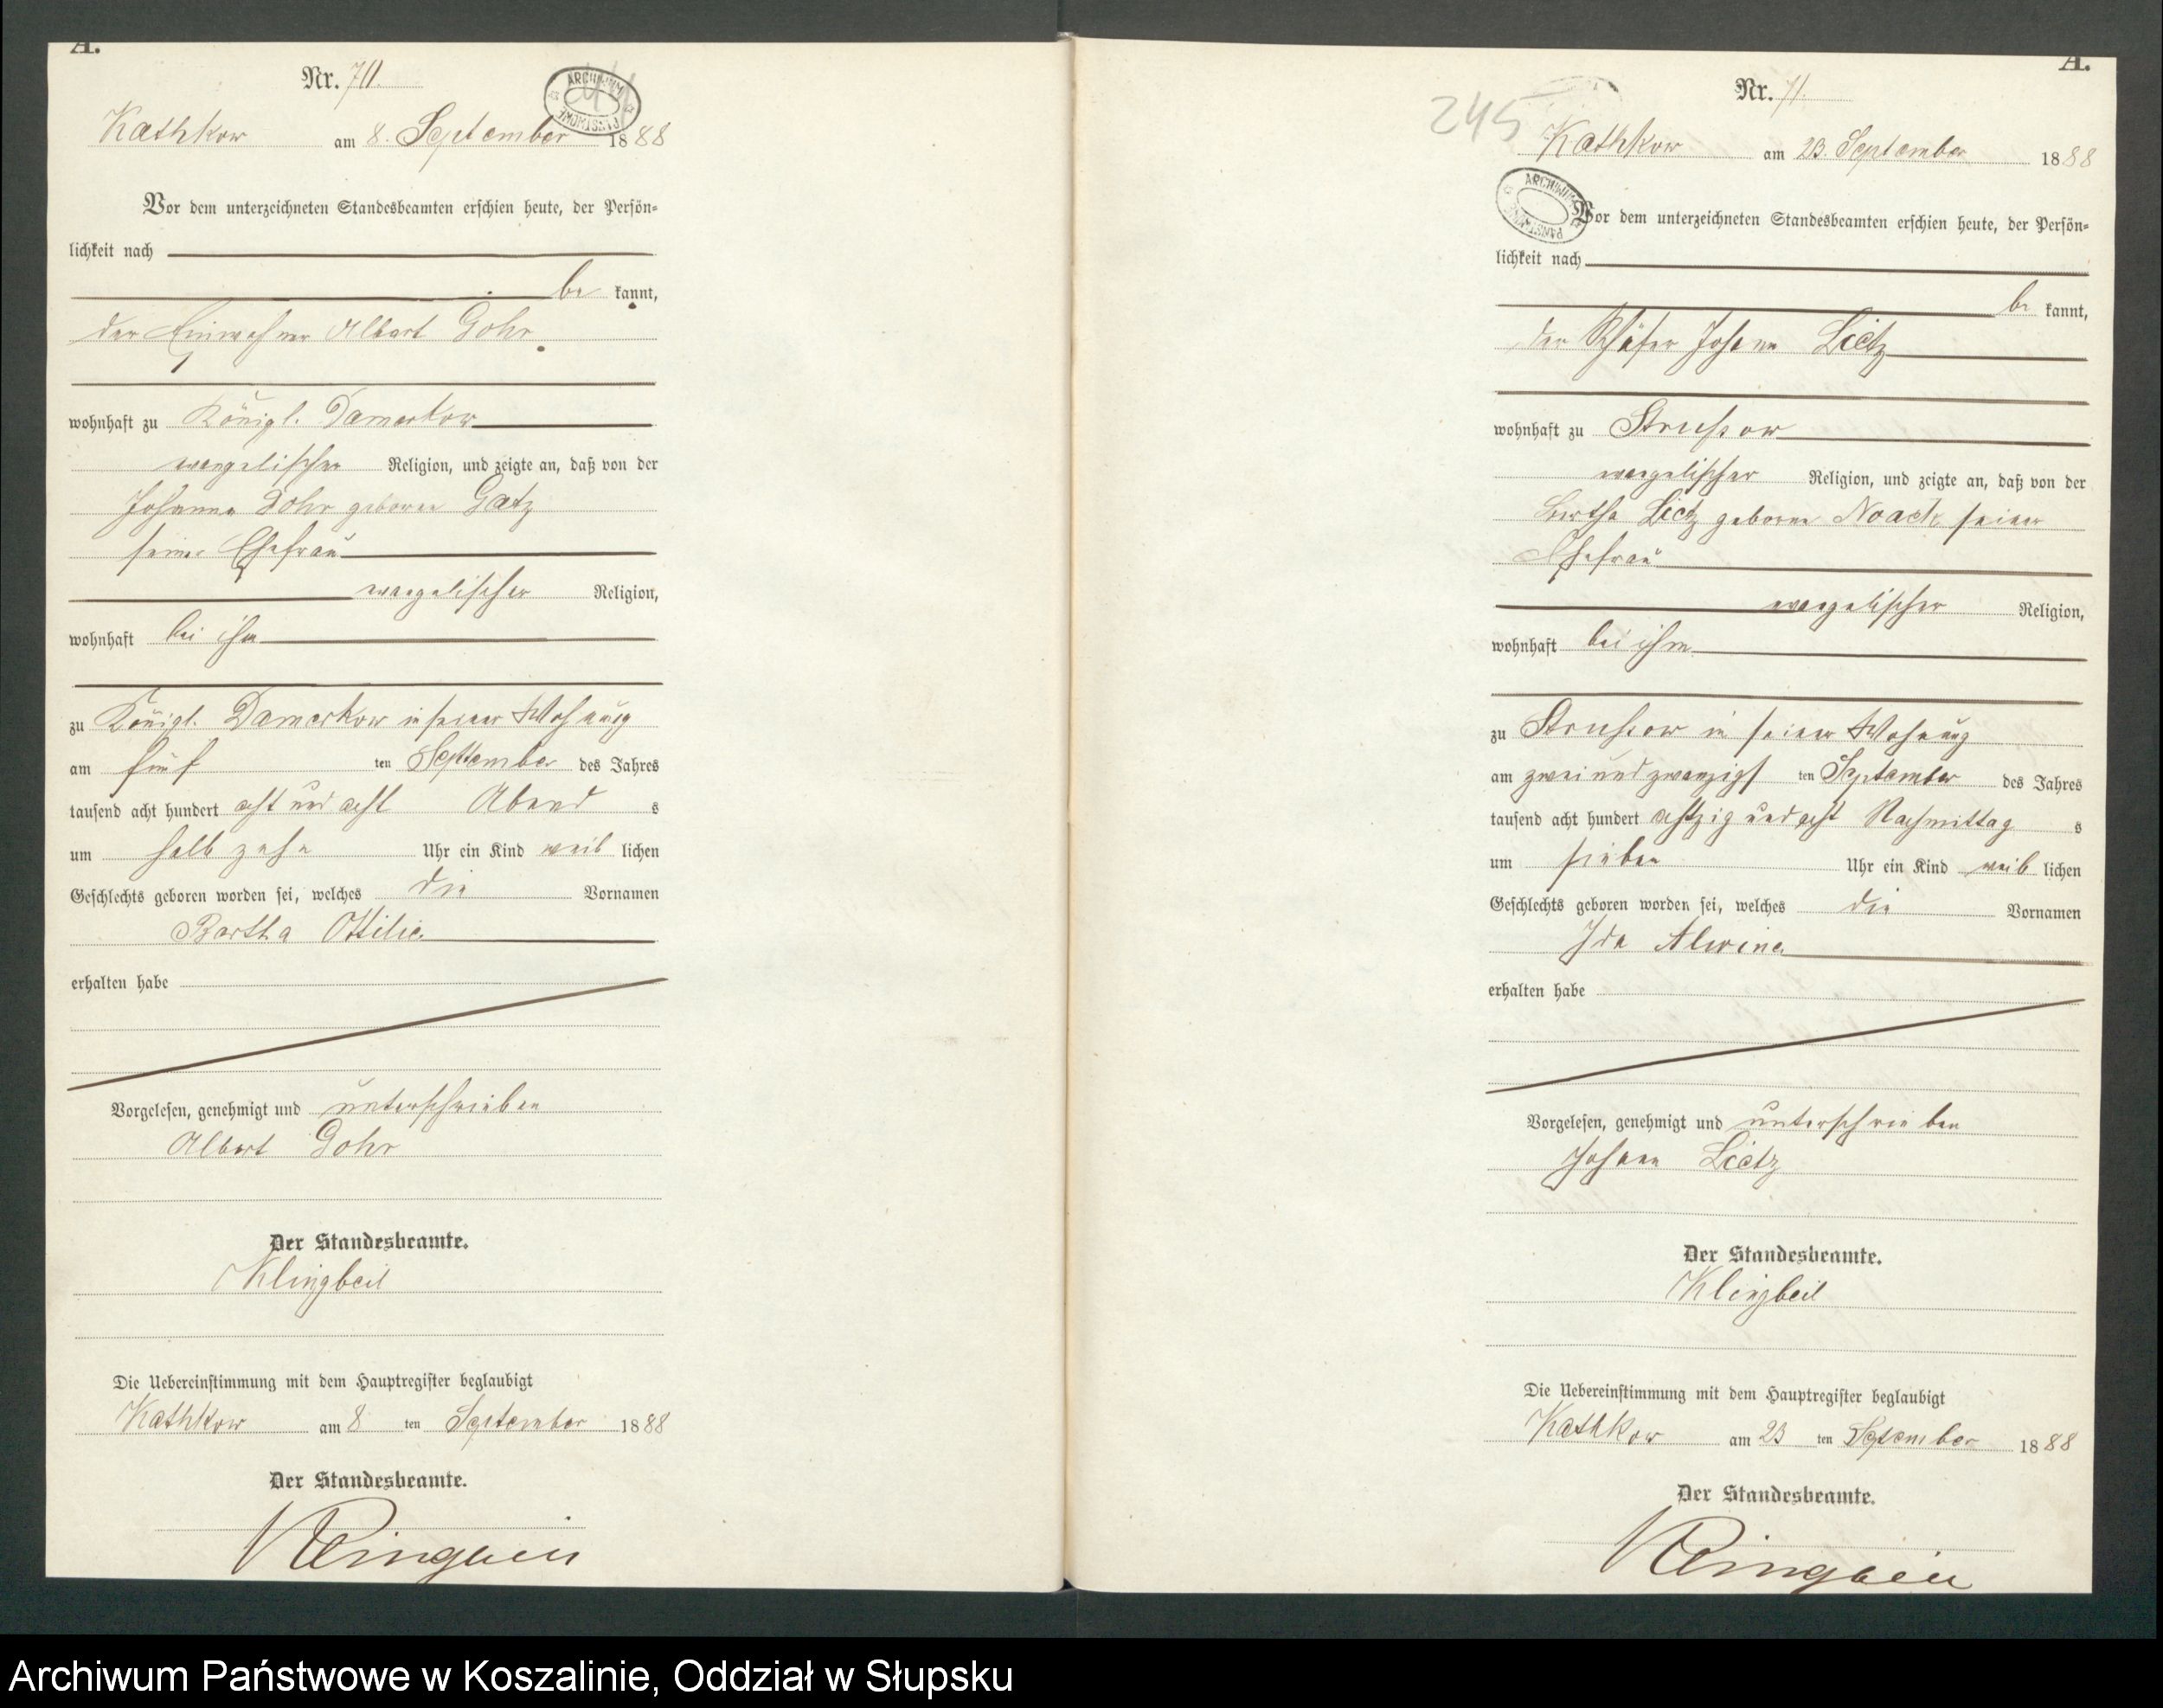 A.
Nr. 70.
Kathkow am 8. September 1888
Vor dem unterzeichneten Standesbeamten erschien heute, der Persön-
lichkeit nach
be kannt,
der Einwohner Albert Gohr
wohnhaft zu Königl. Damerkow
evangelischer Religion, und zeigte an, daß von der
Johanna Gohr geborene Gatz
seiner Ehefrau
evangelischer Religion,
wohnhaft bei ihm
zu Königl. Damerkow in seiner Wohnung
am fünf ten September des Jahres
tausend acht hundert acht und acht Abend s
um halb zehn Uhr ein Kind weib lichen
Geschlechts geboren worden sei, welches die Vornamen
Bertha Ottilie
erhalten habe
Vorgelesen, genehmigt und unterschrieben
Albert Gohr
Der Standesbeamte.
Klingbeil
Die Uebereinstimmung mit dem Hauptregister beglaubigt
Kathkow am 8 ten September 1888
Der Standesbeamte.
Klingbeil
ARCHIWUM
A.
Nr. 71.
245
Kathkow am 23. September 1888
ARCHIWUM
Vor dem unterzeichneten Standesbeamten erschien heute, der Persön-
lichkeit nach
be kannt,
der Schäfer Johann Lietz
wohnhaft zu Strussow
evangelischer Religion, und zeigte an, daß von der
Bertha Lietz geborne Noack seiner
Ehefrau
evangelischer Religion,
wohnhaft bei ihm
zu Strussow in seiner Wohnung
am zwei und zwanzigs ten September des Jahres
tausend acht hundert achtzig und acht Nachmittag s
um sieben Uhr ein Kind weib lichen
Geschlechts geboren worden sei, welches die Vornamen
Ida Alwine
erhalten habe
Vorgelesen, genehmigt und unterschrieben
Johann Lietz
Der Standesbeamte.
Klingbeil
Die Uebereinstimmung mit dem Hauptregister beglaubigt
Kathkow am 23 ten September 1888
Der Standesbeamte.
Klingbeil
Archiwum Państwowe w Koszalinie, Oddział w Słupsku